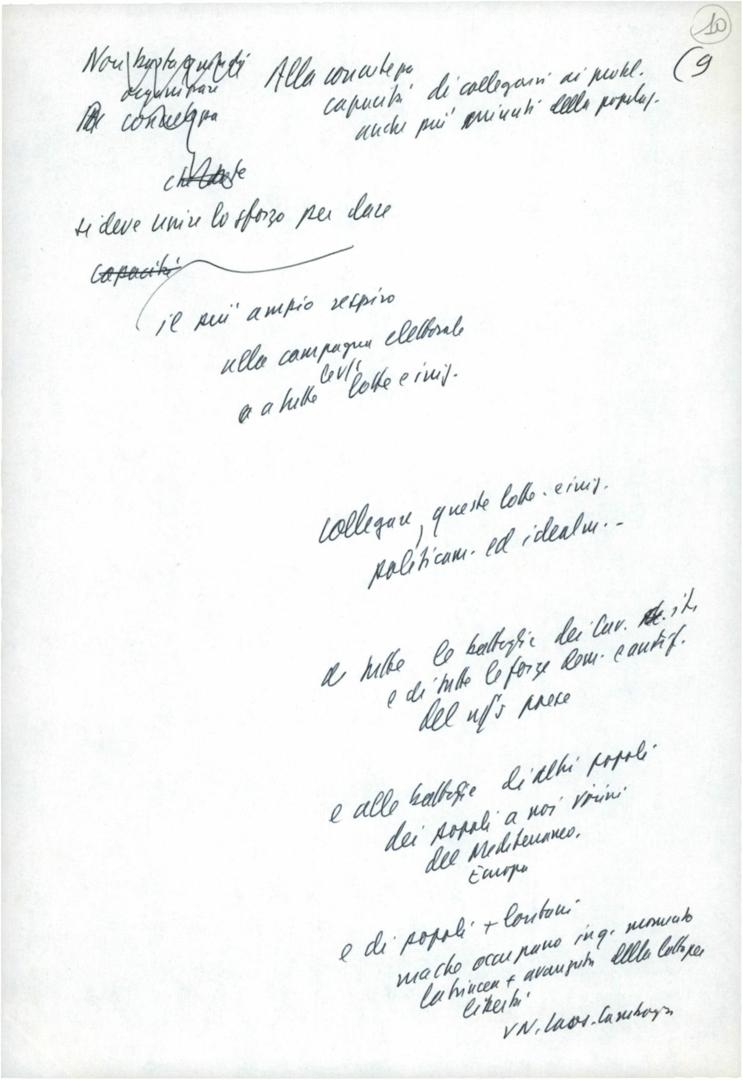 10
(9
Non basta quindi
organizzare
Alla concretezza
capacità di collegarsi ai probl.
anche più minuti della popolaz.
che deve
si deve unire lo sforzo per dare
capacità
il più ampio respiro
alla campagna elettorale
a tutte le ns lotte e iniz.
collegare, queste lotte e iniz.
politicam. ed idealm. -
a tutte le battaglie dei lav. it.
e di tutte le forze dem. e antif.
del ns paese
e alle battaglie di altri popoli
dei popoli a noi vicini
del Mediterraneo.
Europa
e di popoli + lontani
ma che occupano in q. momento
la trincea + avanzata della lotta per
libertà
VN. Laos. Cambogia